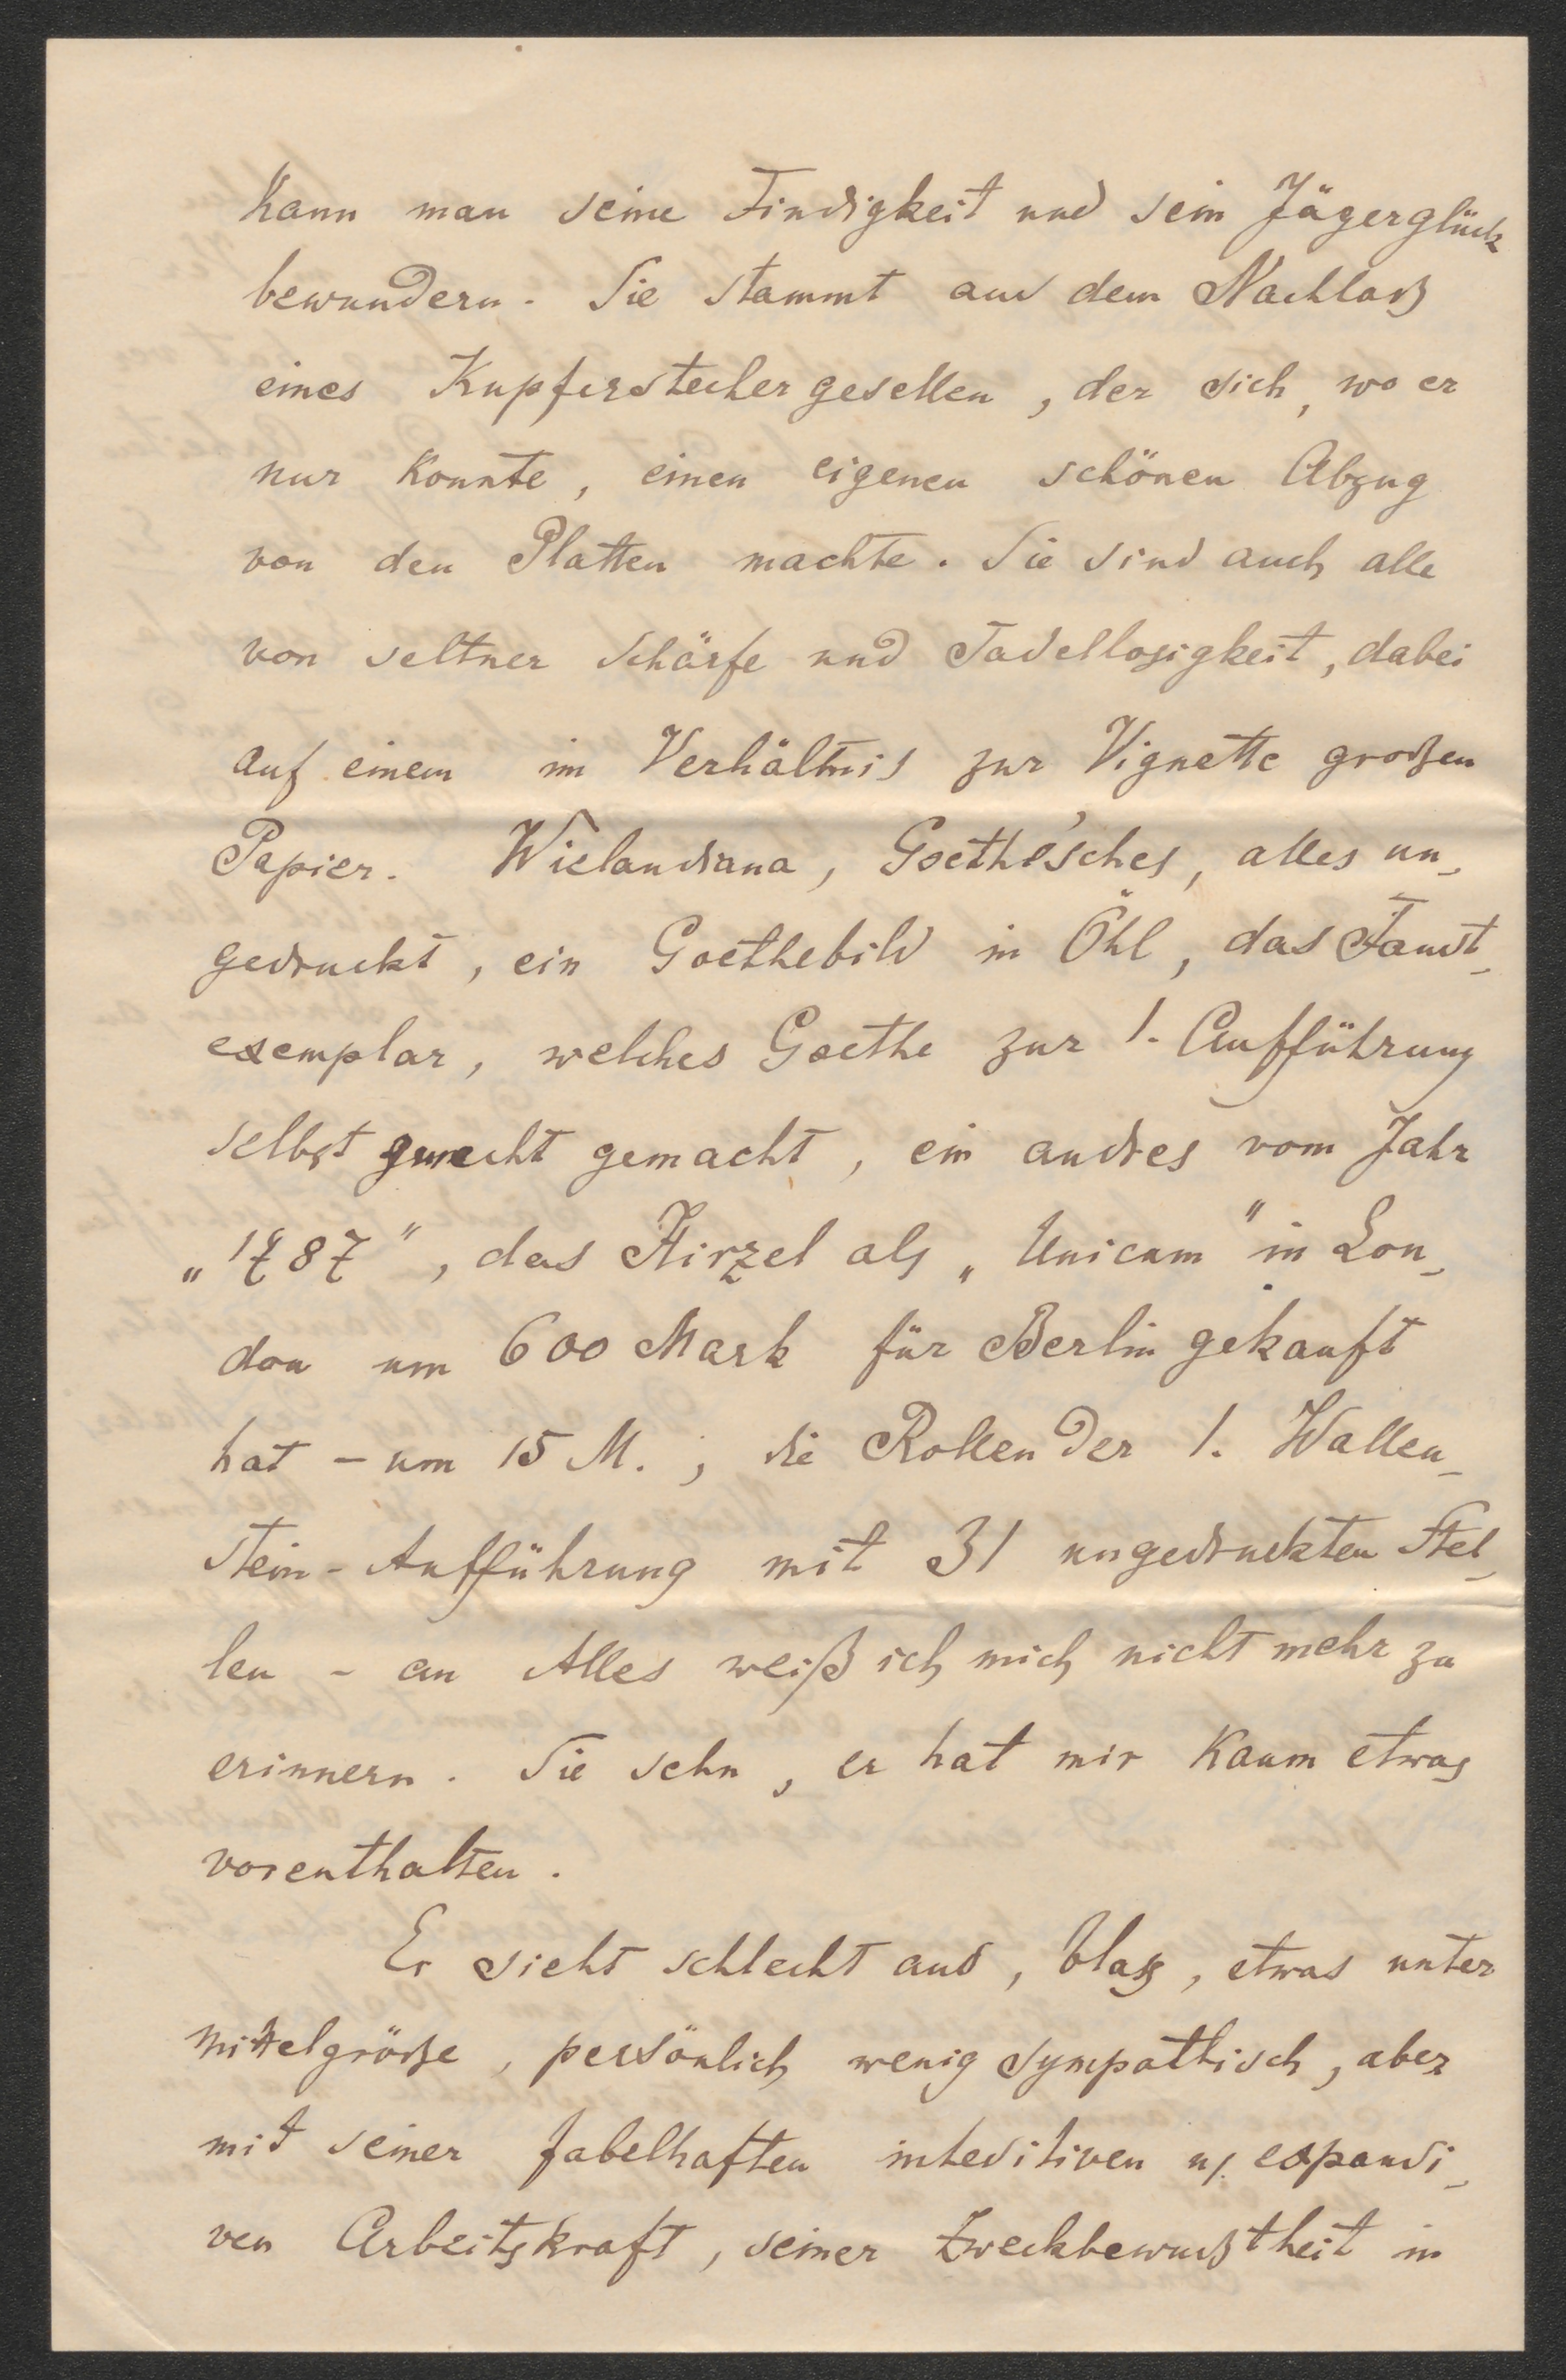 kann man seine Findigkeit und sein Jägerglück
bewundern. Sie stammt aus dem Nachlaß
eines Kupferstechergesellen, der sich, wo er
nur konnte, einen eigenen schönen Abzug
von den Platten machte. Sie sind auch alle
von seltner Schärfe und Tadellosigkeit, dabei
auf einem im Verhältnis zur Vignette großen
Papier. Wielandiana, Goethe'sches, alles un-
gedruckt, ein Goethebild in Öhl, das Faust-
exemplar, welches Goethe zur 1. Aufführung
selbst gemacht, ein andres vom Jahr
„1787", das Hirzel als „Unicum" in Lon-
don um 600 Mark für Berlin gekauft
hat – um 15 M.; die Rollen der 1. Wallen-
stein-Aufführung mit 31 ungedruckten Stel-
len – an Alles weiß ich mich nicht mehr zu
erinnern. Sie sehn, er hat mir kaum etwas
vorenthalten.
Er sieht schlecht aus, blaß, etwas unter
Mittelgröße, persönlich wenig sympathisch, aber
mit seiner fabelhaften u. expansi-
ven Arbeitskraft, seiner Zweckbewußtheit in